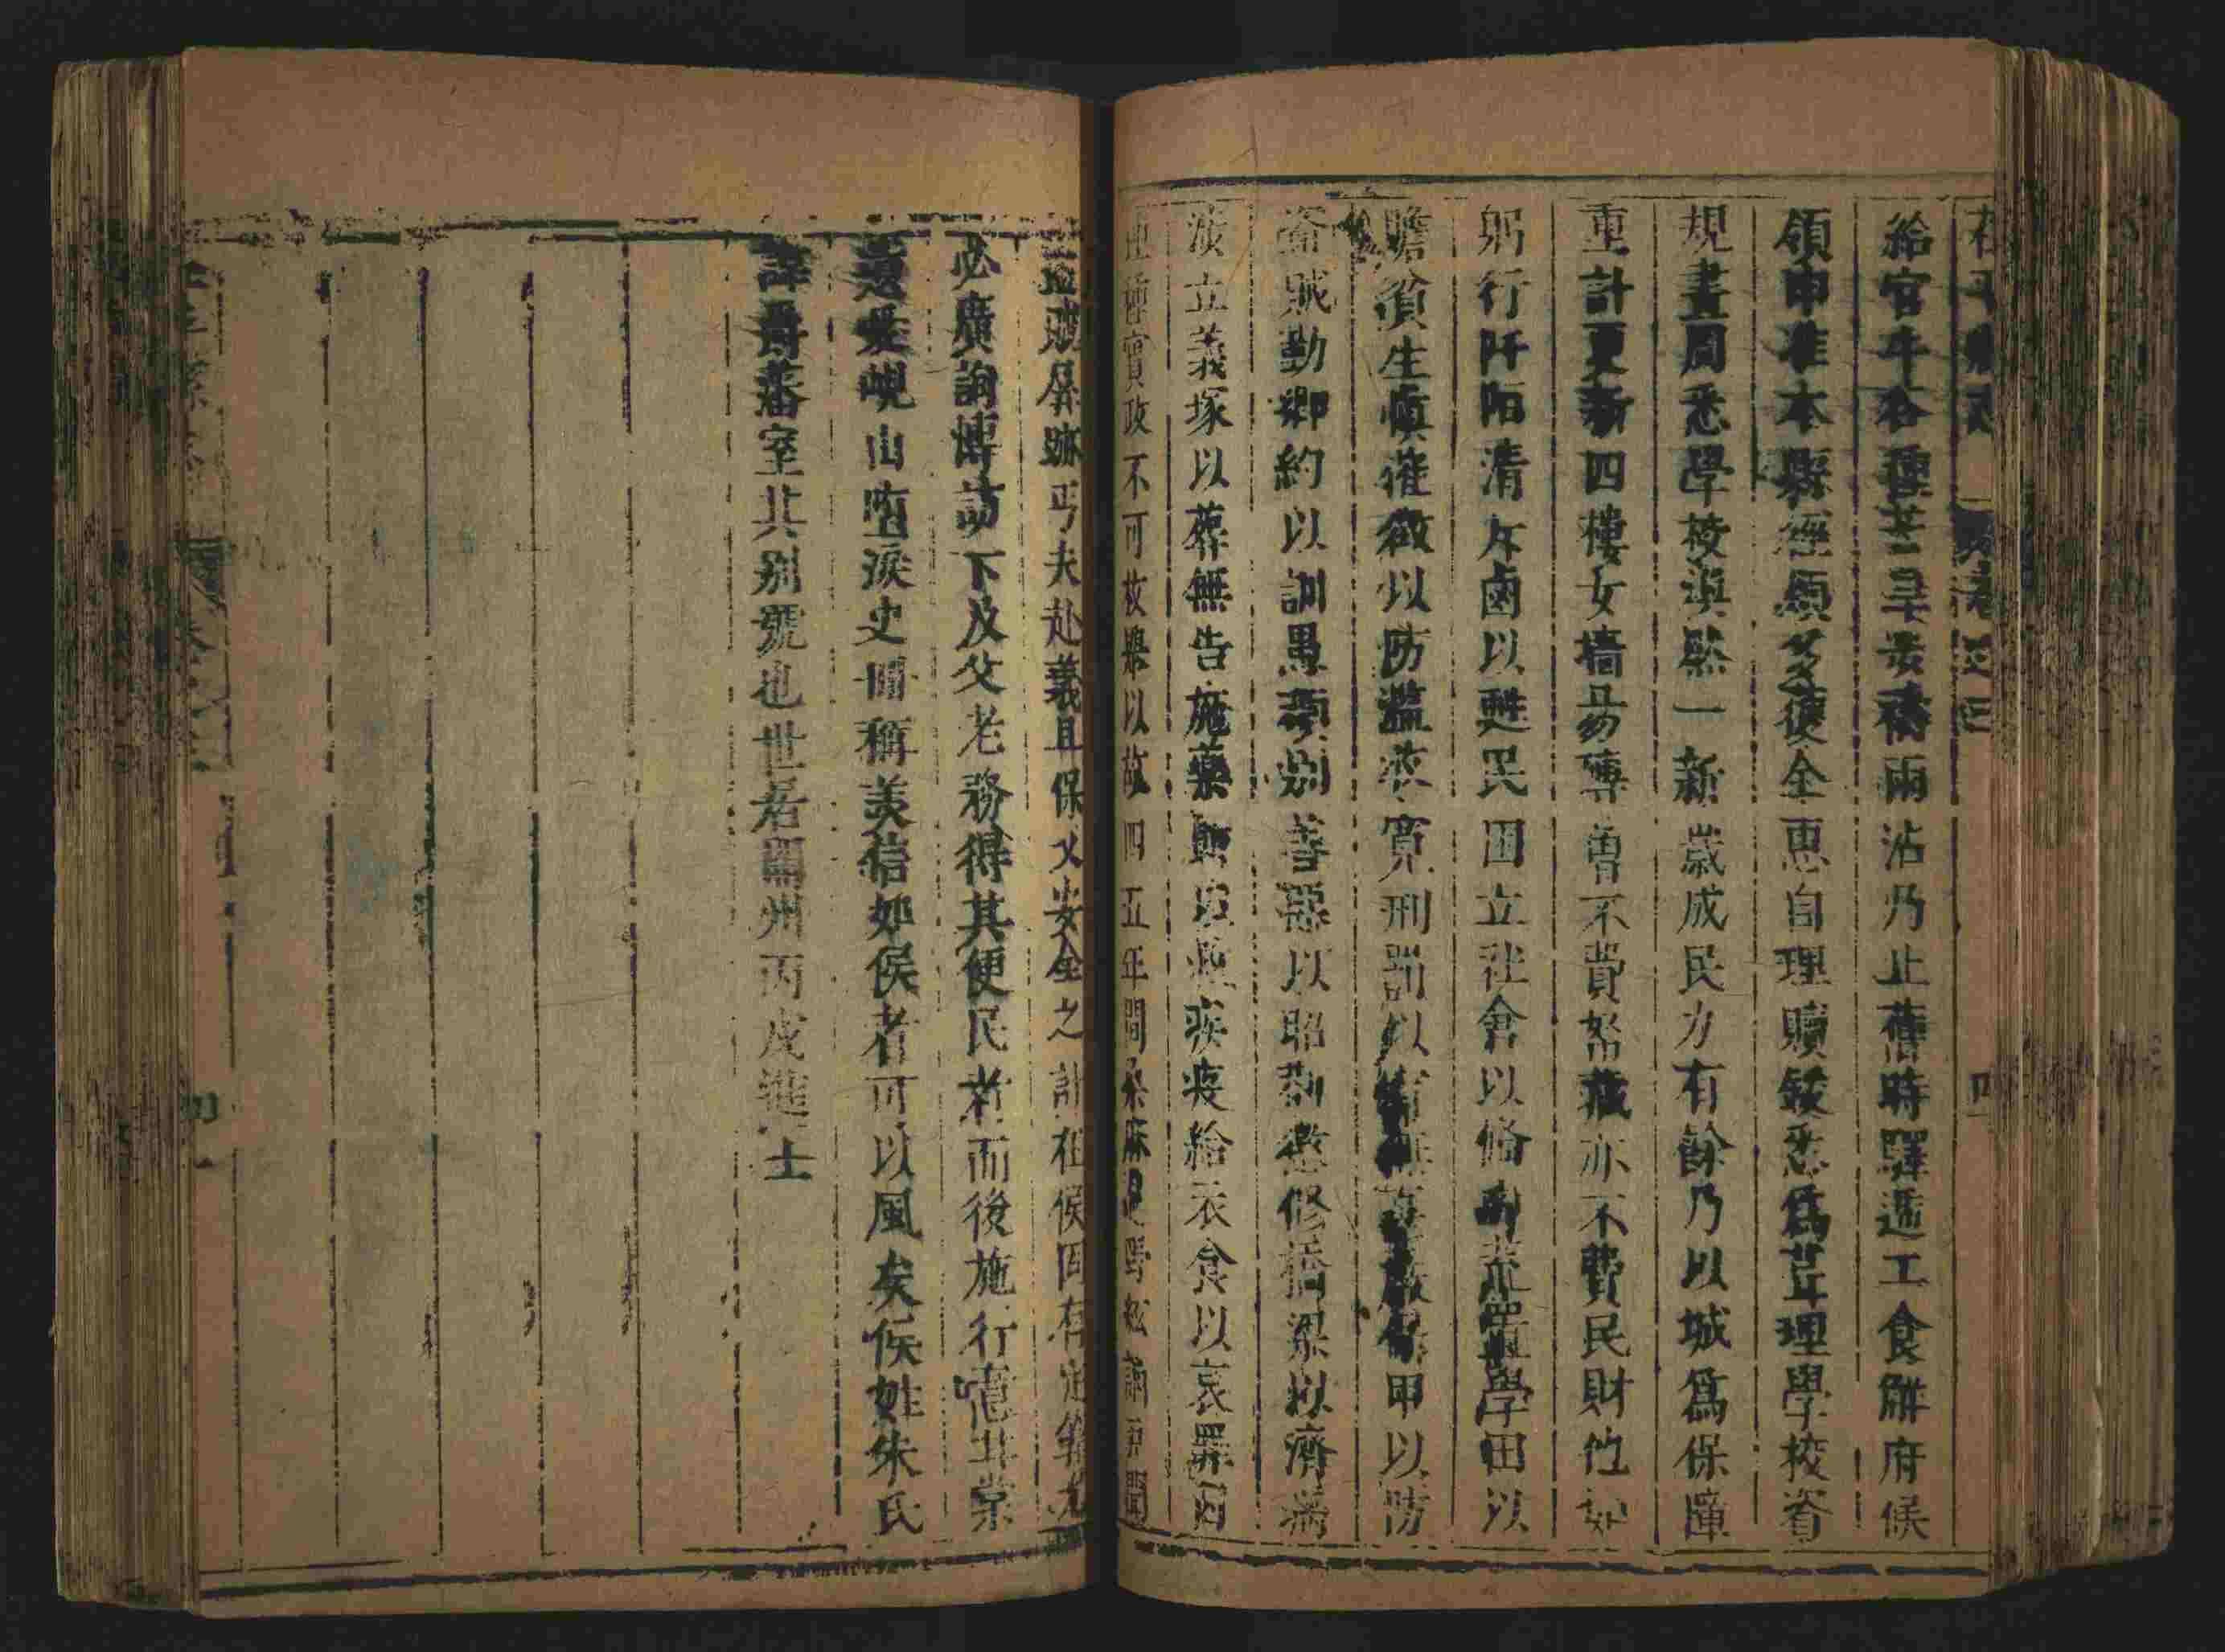 給官牛各種並早晏禱雨沾乃止舊時驛遞工食解府侯
領申准本縣徑領多獲全惠自理贖鍰悉爲葺理學校資
規畫周悉學校煥然一新歲成民力有餘乃以城爲保障
重計更新四樓女墻易磚曾不費帑藏亦不費民財他如
躬行阡陌清斥鹵以甦民困立社倉以俻荒置學田以
贍貧生慎催徵以防濫寬刑罰以嚴保甲以防
盜賊勤鄉約以訓愚頑别善惡以昭勸懲修橋梁以濟病
涉立義塚以葬無告施藥餌以救疾疫給衣食以哀罪囚
種種實政不可枚舉以故四五年間桑麻遍野
盗賊屏跡丐夫赴義且保乂安全之計在侯固有定算尤
必廣詢博訪下及父老務得其便民者而後施行噫甘棠
遺愛峴山墮淚史冊稱美信如侯者可以風矣侯姓朱氏
諱爵藩室其别號也世居開州丙戌進士